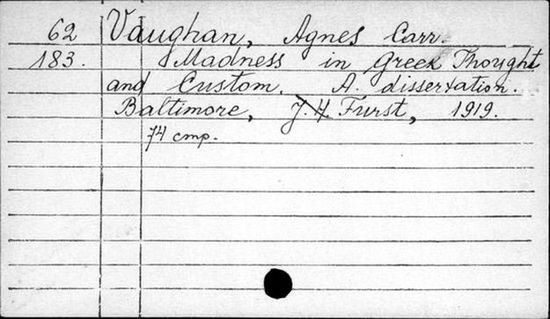 62 Vaughan, Agnes Carr.
183. Madness in Greek Thought
and Custom. A dissertation.
Baltimore, J. H. Furst, 1919.
74 cmp.